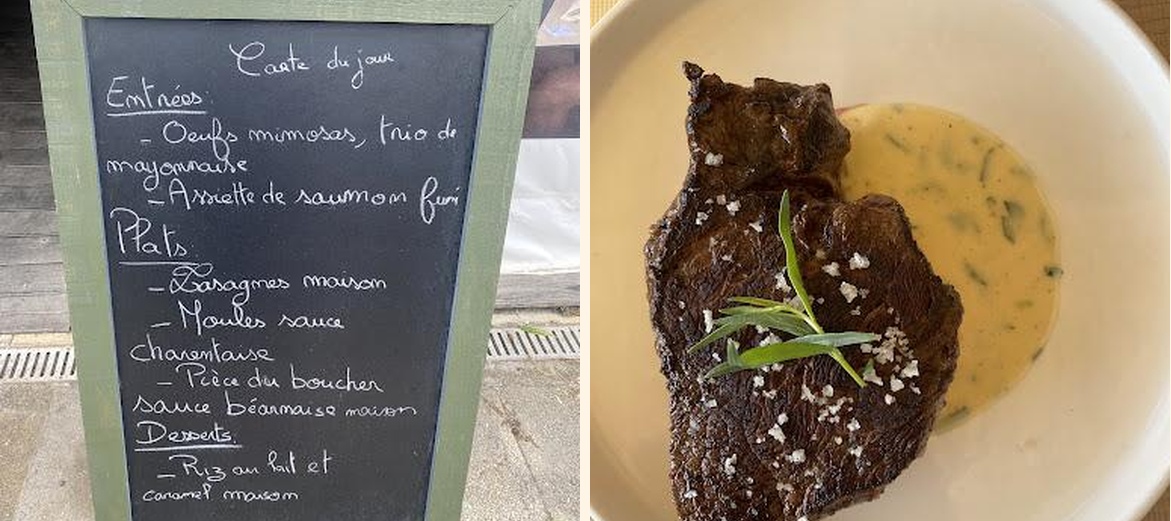 Carte du jour
Entrées:
- Oeufs mimosas, trio de
mayonnaise
- Assiette de saumon fumé
Plats:
- Lasagnes maison
- Moules sauce
charentaise
- Pièce du boucher
sauce béarnaise maison
Desserts:
- Riz au lait et
caramel maison